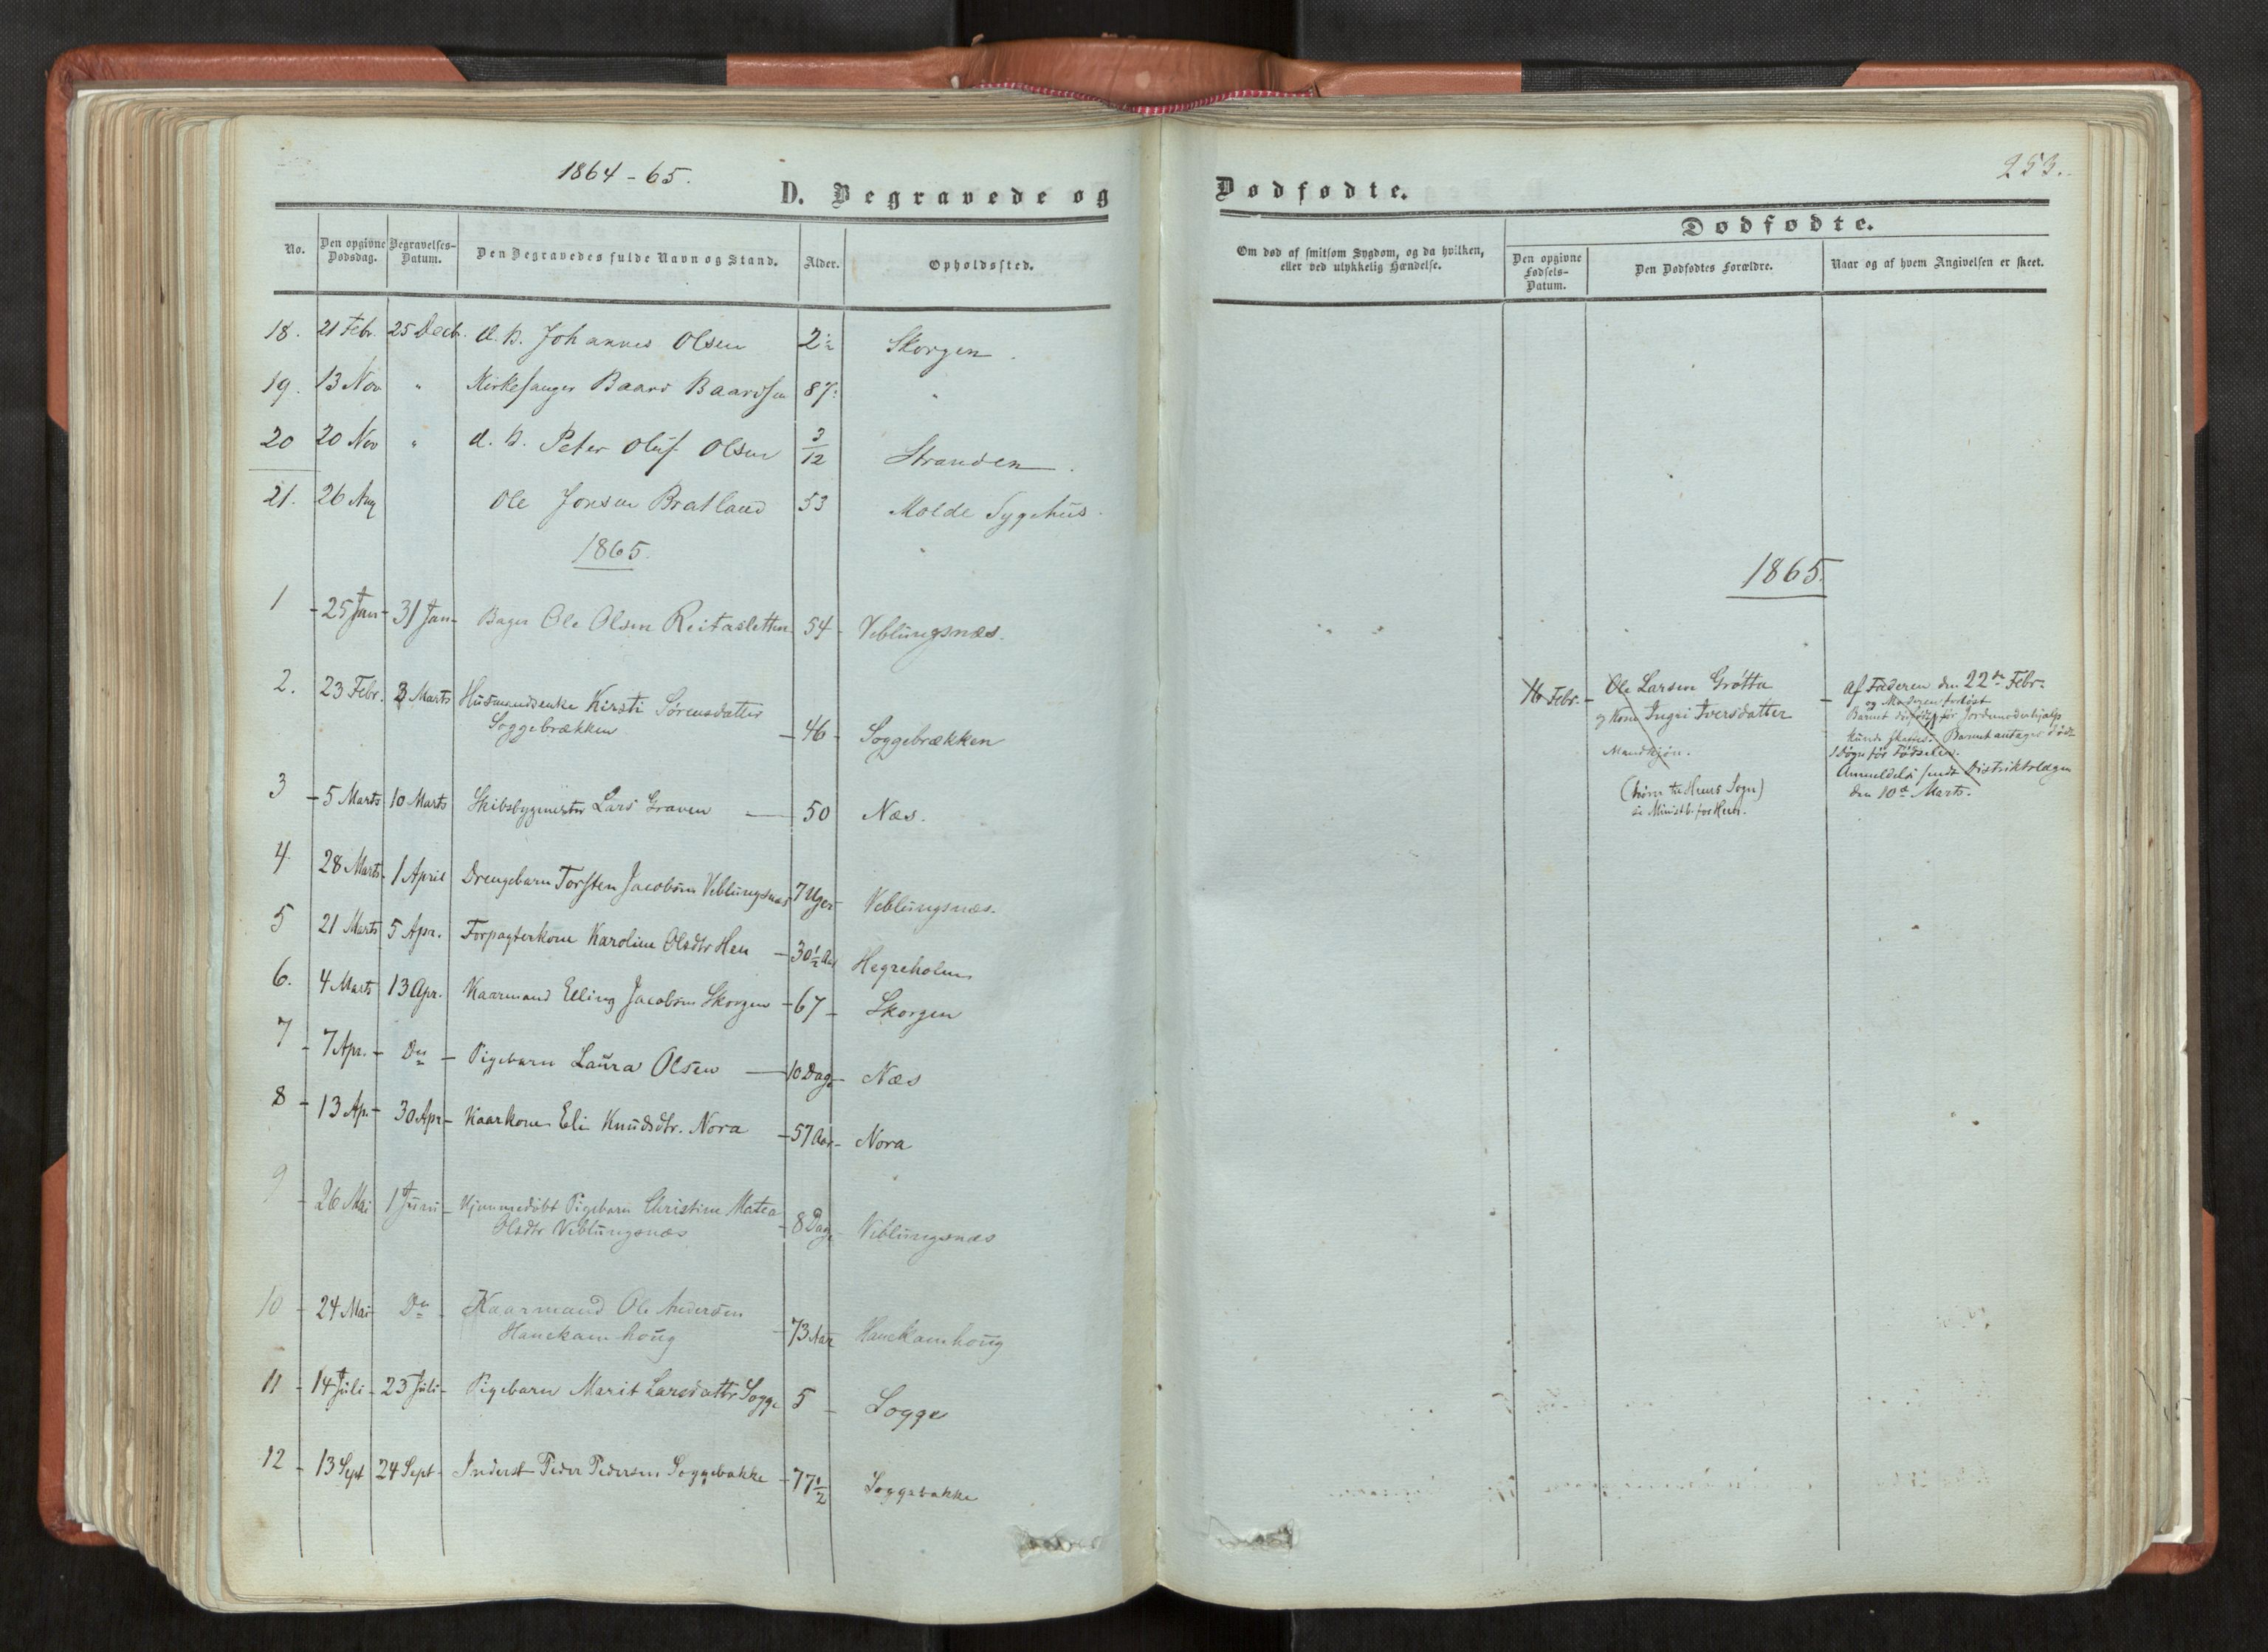 1864-65.
D. Begravede og
No.
Den opgivne Dødsdag.
Begravelses-Datum.
Den Begravedes fulde Navn og Stand.
Alder.
Opholdssted.
18. 21 Febr. 25 Decbr. d. b. Johannes Olsen 2 Skorgen.
19. 13 Nov " Kirkesanger Baard Baardsen 87 "
20 20 Nov " d. b. Peter Oluf Olsen 3/12 Stranden.
21. 26 Aug Ole Jonsen Bratland 53 Molde Sygehus.
1865.
1 - 25 Jan - 31 Jan - Bager Ole Olsen Reitasletten 54 - Veblungsnæs.
2. 23 Febr. 3 Marts Husmandsenke Kirsti Sørensdatter
Soggebrækken - 46 - Soggebrækken
3 - 5 Marts 10 Marts Skibsbygmester Lars Graven - 50 Næs.
4 28 Marts 1 April Drengebarn Torsten Jacobsen Veblungsnæs 7 Uger Veblungsnæs.
5 21 Marts 5 Apr. Forpagterkone Karoline Olsdtr Hen - 30½ Aar Hegreholm
6. 4 Marts 13 Apr. Kaarmand Elling Jacobsen Skorgen - 67 - Skorgen
7 - 7 Apr. - Do - Pigebarn Laura Olsen - 10 Dage - Næs
8 - 13 Ap. - 30 Apr - Kaarkone Eli Knudsdtr. Nora - 57 Aar - Nora
9 - 26 Mai 1 Juni - Hjemmedøbt Pigebarn Christine Matea
Olsdtr Veblungsnæs - 8 Dage - Veblungsnæs
10 - 24 Mai - Do - Kaarmand Ole Andersen
Hanekamhoug - 73 Aar Hanekamhoug
11 - 14 Juli - 23 Juli - Pigebarn Marit Larsdatter Sogge 5 - Sogge
12 - 13 Sept 24 Sept - Inderst Peder Pedersen Soggebakke - 77½ Soggebakke
253.
Dødfødte.
Om død af smitsom Sygdom, og da hvilken,
eller ved ulykkelig Hændelse.
Dødfødte.
Den opgivne
Fødsels-
Datum.
Den Dødfødtes Forældre.
Naar og af hvem Angivelsen er skeet.
1865.
16 Febr. - Ole Larsen Grøtta
og Kone Ingri Iversdatter
Mandkjøn.
(hører til Hens Sogn)
se Ministb. for Hen.
af Faderen den 22de Febr.
og Moderen forløst
Barnet før Jordemoderhjælp
kunde skaffes. Barnet antages død
1 Døgn før Fødselen.
Anmeldelse sendt Distriktslægen
den 10de Marts.